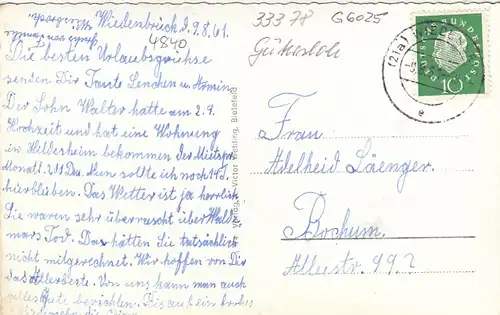 Wiedenbrück d. 9.8.61.
4840
33378
G6025
Gütersloh
(21a)
DEUTSCHE BUNDESPOST
10
e
Die besten Urlaubsgrüsse
senden Dir Tante Lenchen u. Armin
Der Sohn Walter hatte am 2.9.
Hochzeit und hat eine Wohnung
in Hildesheim bekommen der Mietspr.
Monatl. DM. Nun sollte ich noch 14 T.
hierbleiben. Das Wetter ist ja herrlich
Sie waren sehr überrascht über Wald
mars Tod. Das hätten Sie tatsächlich
nicht mitgerechnet. Wir hoffen von Dir
das Allerbeste. Von uns kann man auch
alles Gute berichten. Bis auf ein frohes
Verlag Victor Bielefeld
Frau
Adelheid Läenger.
Bochum.
Alleestr. 99?